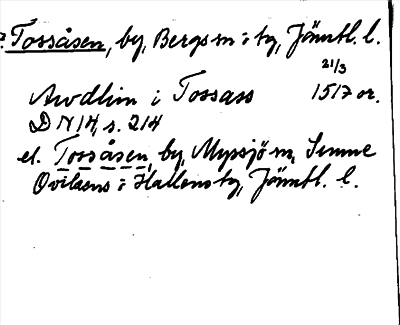 ? Tossåsen, by, Bergs sn o. tg, Jämtl. l.
21/3
Awdhin i Tossass 1517 or.
DN 14, s. 214
el. Tossåsen, by, Myssjö sn,
Ovikens o. Hallens tg, Jämtl. l.